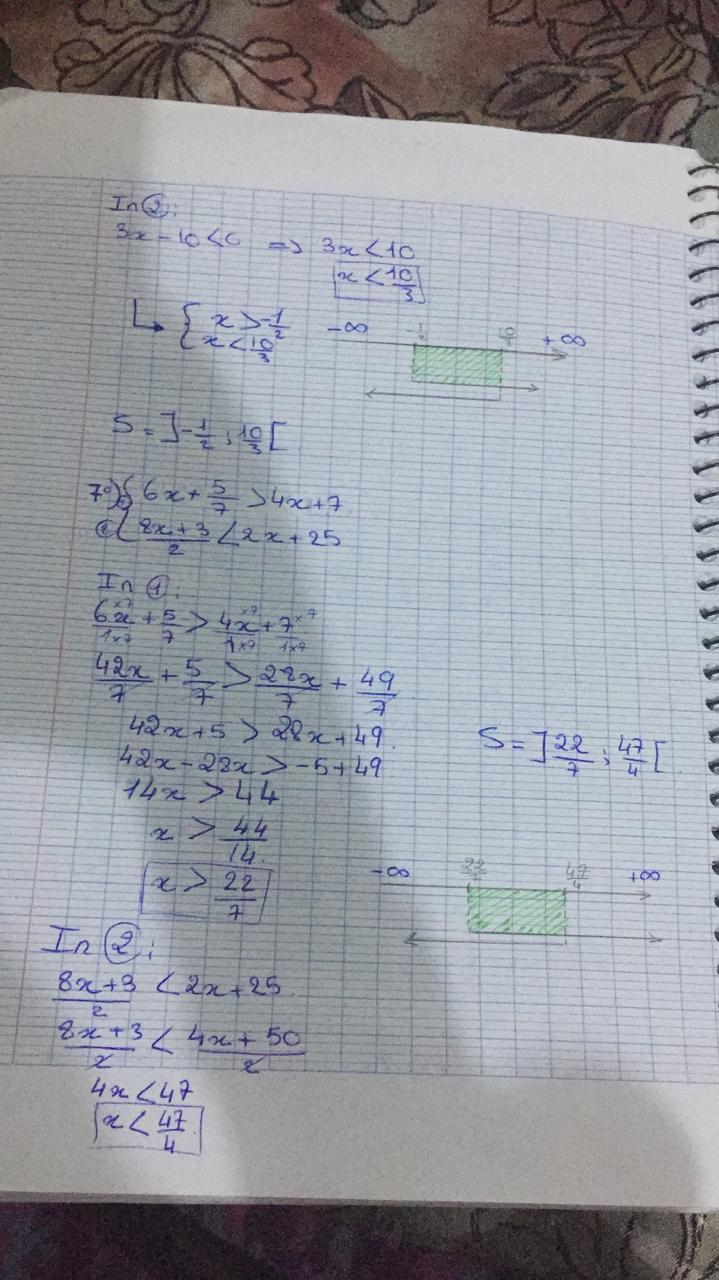 In ②:
3x - 10 < 0 => 3x < 10
x < 10/3
↳ { x > -1/2
x < 10/3
-∞ -1/2 10/3 +∞
S = ]-1/2 ; 10/3 [
7°) ① { 6x + 5/7 > 4x + 7
② { (8x+3)/2 < 2x + 25
In ①:
6x×7/1×7 + 5/7 > 4x×7/1×7 + 7×7/1×7
42x/7 + 5/7 > 28x/7 + 49/7
42x + 5 > 28x + 49
42x - 28x > -5 + 49
14x > 44
x > 44/14
x > 22/7
S = ] 22/7 ; 47/4 [
-∞ 22/7 47/4 +∞
In ②:
(8x+3)/2 < 2x + 25
(8x+3)/2 < (4x+50)/2
4x < 47
x < 47/4